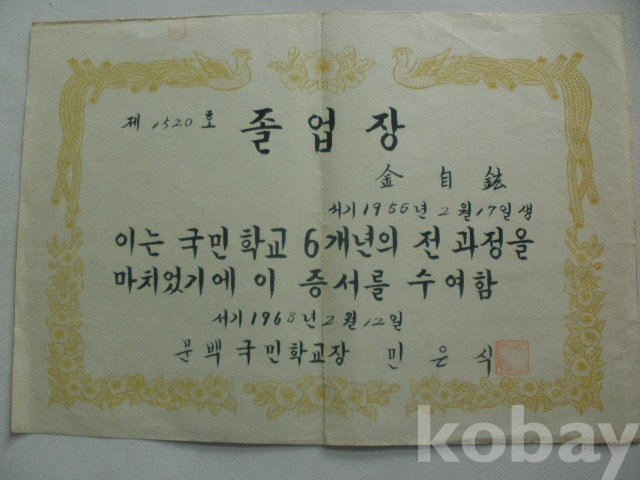 제 1520 호 졸업장
金 自 鉉
서기 1956년 2월 17일 생
이는 국민학교 6개년의 전 과정을
마치었기에 이 증서를 수여함
서기 1968년 2월 12일
문백 국민학교장 민 은 식
kobay